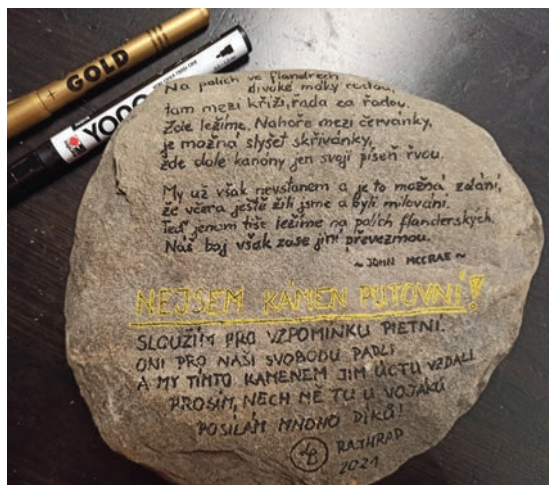 GOLD
YONO
Na polích ve flandrech
divoké máky rostou,
tam mezi kříži, řada za řadou.
Zde ležíme. Nahoře mezi červánky,
je možná slyšet skřivánky,
zde dole kanóny jen svoji píseň řvou.
My už však nevstanem a je to možná zdání,
že včera ještě žili jsme a byli milováni.
Teď jenom tiše ležíme na polích flanderských.
Náš boj však zase jiní převezmou.
~ JOHN MCCRAE ~
NEJSEM KÁMEN PUTOVNÍ!
SLOUŽÍM PRO VZPOMÍNKU PIETNÍ.
ONI PRO NAŠI SVOBODU PADLI
A MY TÍMTO KAMENEM JIM ÚCTU VZDALI
PROSÍM, NECH MĚ TU U VOJÁKŮ
POSÍLÁM MNOHO DÍKŮ!
RAJHRAD
2021